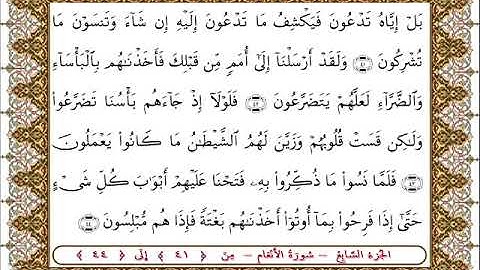 بَلْ إِيَّاهُ تَدْعُونَ فَيَكْشِفُ مَا تَدْعُونَ إِلَيْهِ إِن شَآءَ وَتَنسَوْنَ مَا
تُشْرِكُونَ ﴿٤١﴾ وَلَقَدْ أَرْسَلْنَآ إِلَىٰٓ أُمَمٍ مِّن قَبْلِكَ فَأَخَذْنَٰهُم بِٱلْبَأْسَآءِ
وَٱلضَّرَّآءِ لَعَلَّهُمْ يَتَضَرَّعُونَ ﴿٤٢﴾ فَلَوْلَآ إِذْ جَآءَهُم بَأْسُنَا تَضَرَّعُوا۟
وَلَٰكِن قَسَتْ قُلُوبُهُمْ وَزَيَّنَ لَهُمُ ٱلشَّيْطَٰنُ مَا كَانُوا۟ يَعْمَلُونَ
﴿٤٣﴾ فَلَمَّا نَسُوا۟ مَا ذُكِّرُوا۟ بِهِۦ فَتَحْنَا عَلَيْهِمْ أَبْوَٰبَ كُلِّ شَىْءٍ
حَتَّىٰٓ إِذَا فَرِحُوا۟ بِمَآ أُوتُوٓا۟ أَخَذْنَٰهُم بَغْتَةً فَإِذَا هُم مُّبْلِسُونَ ﴿٤٤﴾
الجزء السابع – سورة الأنعام – من ﴿ ٤١ ﴾ إلى ﴿ ٤٤ ﴾